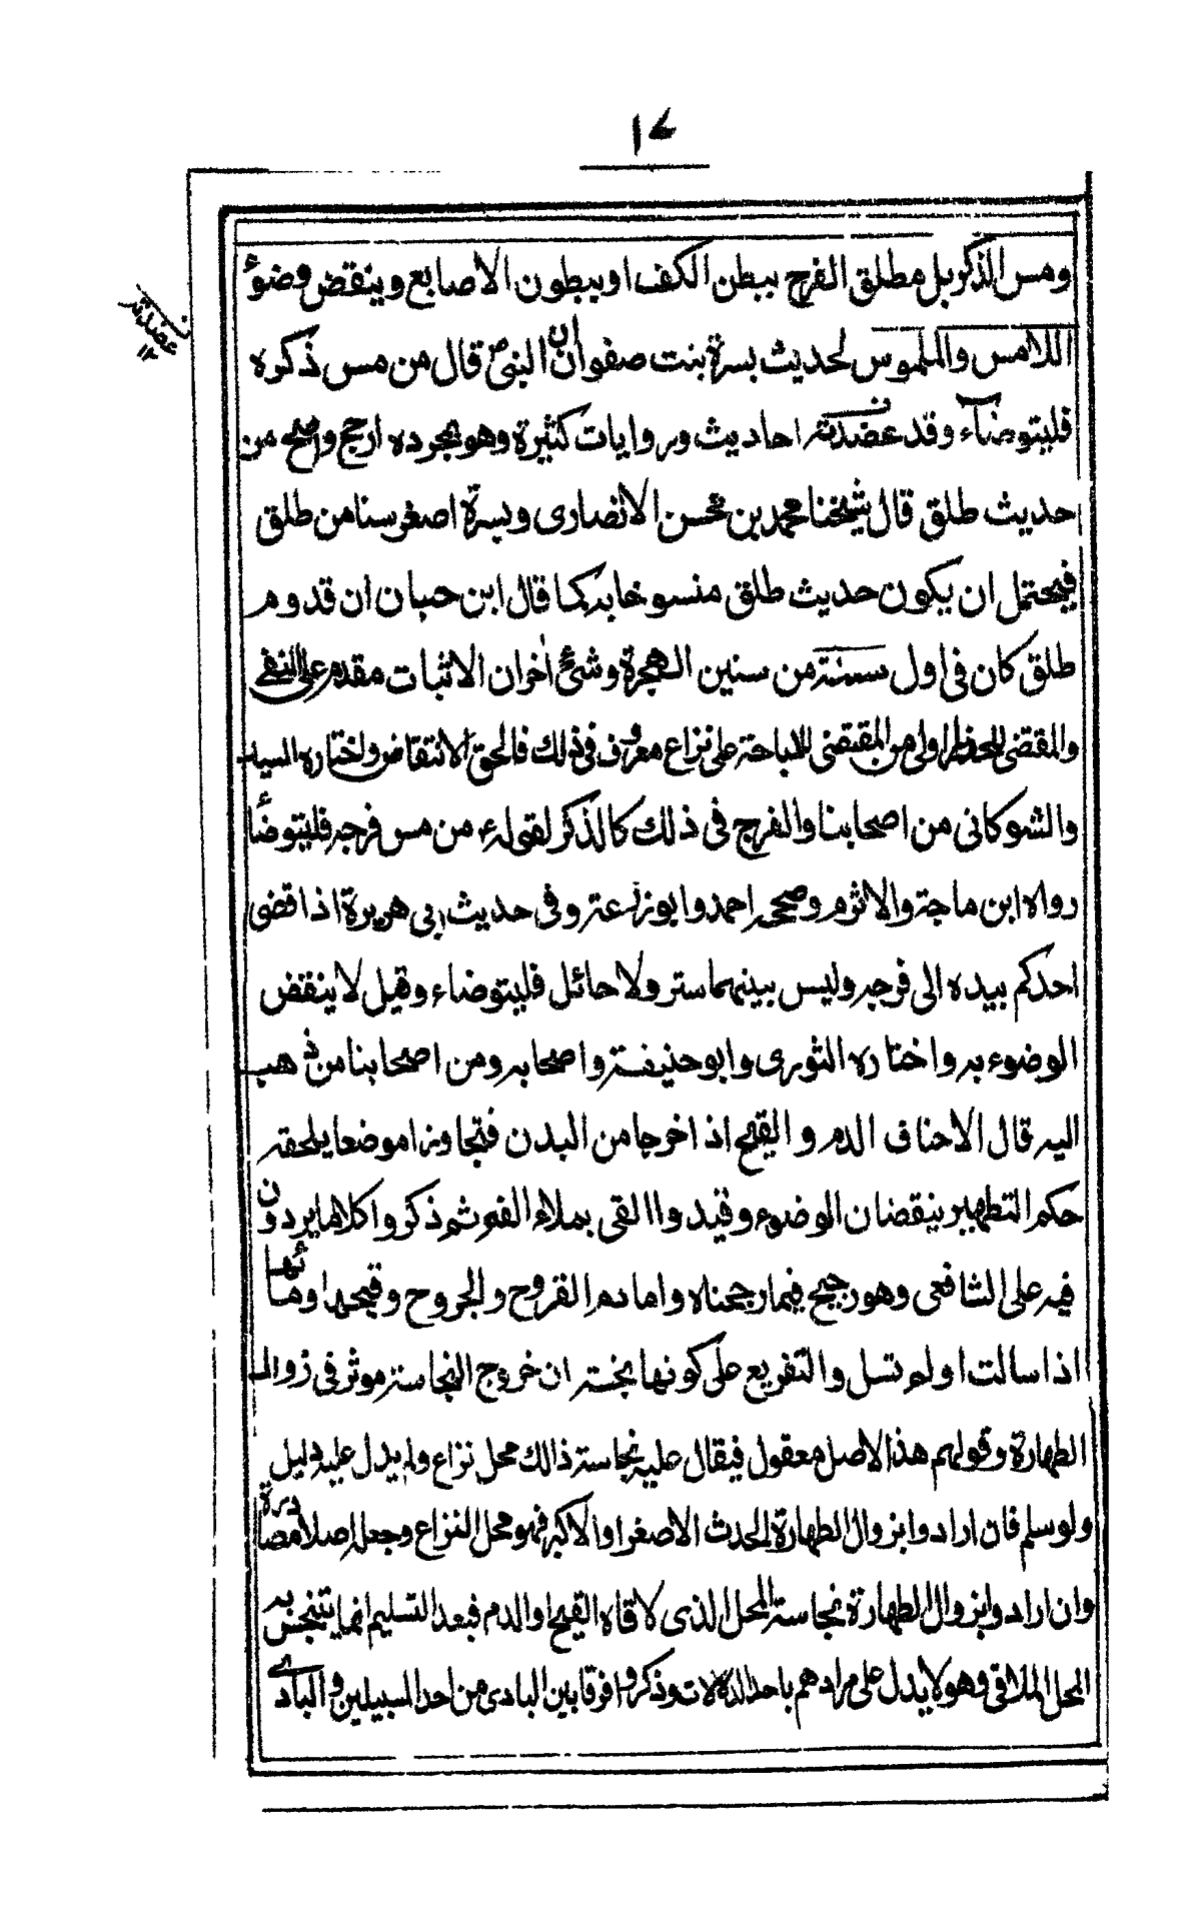 ١٧
ومس الذكر بل مطلق الفرج ببطن الكف او ببطون الاصابع وينقض وضوء
اللامس والملموس لحديث بسرة بنت صفوان ان النبي ص قال من مس ذكره
فليتوضاء وقد عضدته احاديث وروايات كثيرة وهو بمجرده ارجح واصح من
عضدته
١٢
حديث طلق قال شيخنا محمد بن محسن الانصاري وبسرة اصغر سنا من طلق
فيحتمل ان يكون حديث طلق منسوخا به كما قال ابن حبان ان قدوم
طلق كان في اول سنة من سنين الهجرة وشئ اخر ان الاثبات مقدم على النفي
والمقتضى للحظر اولى من المقتضى للاباحة على نزاع معروف في ذلك فالحق الانتقاض واختاره السيد
والشوكاني من اصحابنا والفرج في ذلك كالذكر لقوله من مس فرجه فليتوضأ
رواه ابن ماجة والاثرم وصححه احمد وابوزرعة وفي حديث ابي هريرة اذا قضى
احدكم بيده الى فرجه وليس بينهما ستر ولا حائل فليتوضاء وقيل لا ينقض
الوضوء به واختاره الثوري وابو حنيفة واصحابه ومن اصحابنا من ذهب
اليه قال الاحناف الدم والقيح اذا خرجا من البدن فتجاوزا موضعا يلحقه
حكم التطهير ينقضان الوضوء وقيدوا القي بملاء الفم ثم ذكروا كلاما يردون
فيه على الشافعي وهو رجيح فيما رجحناه واما دم القروح والجروح وقيحها ومائها
اذا سالت او لم تسل والتفريع على كونها نجسة ان خروج النجاسة موثر في زوال
الطهارة وقولهم هذا الاصل معقول فيقال عليه نجاسة ذالك محل نزاع ولم يدل عليه دليل
ولو سلم فان ارادوا بزوال الطهارة الحدث الاصغر او الاكبر فهو محل النزاع وجعله اصلا مصادرة
وان ارادوا بزوال الطهارة نجاسة المحل الذي لاقاه القيح او الدم فبعد التسليم انما يتنجس به
المحل الملاقي وهو لا يدل على مرادهم باحد الدلالات وذكروا فرقا بين البادي من احد السبيلين والبادي